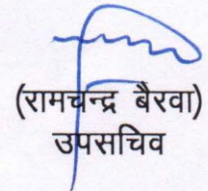 (रामचन्द्र बैरवा)
उपसचिव